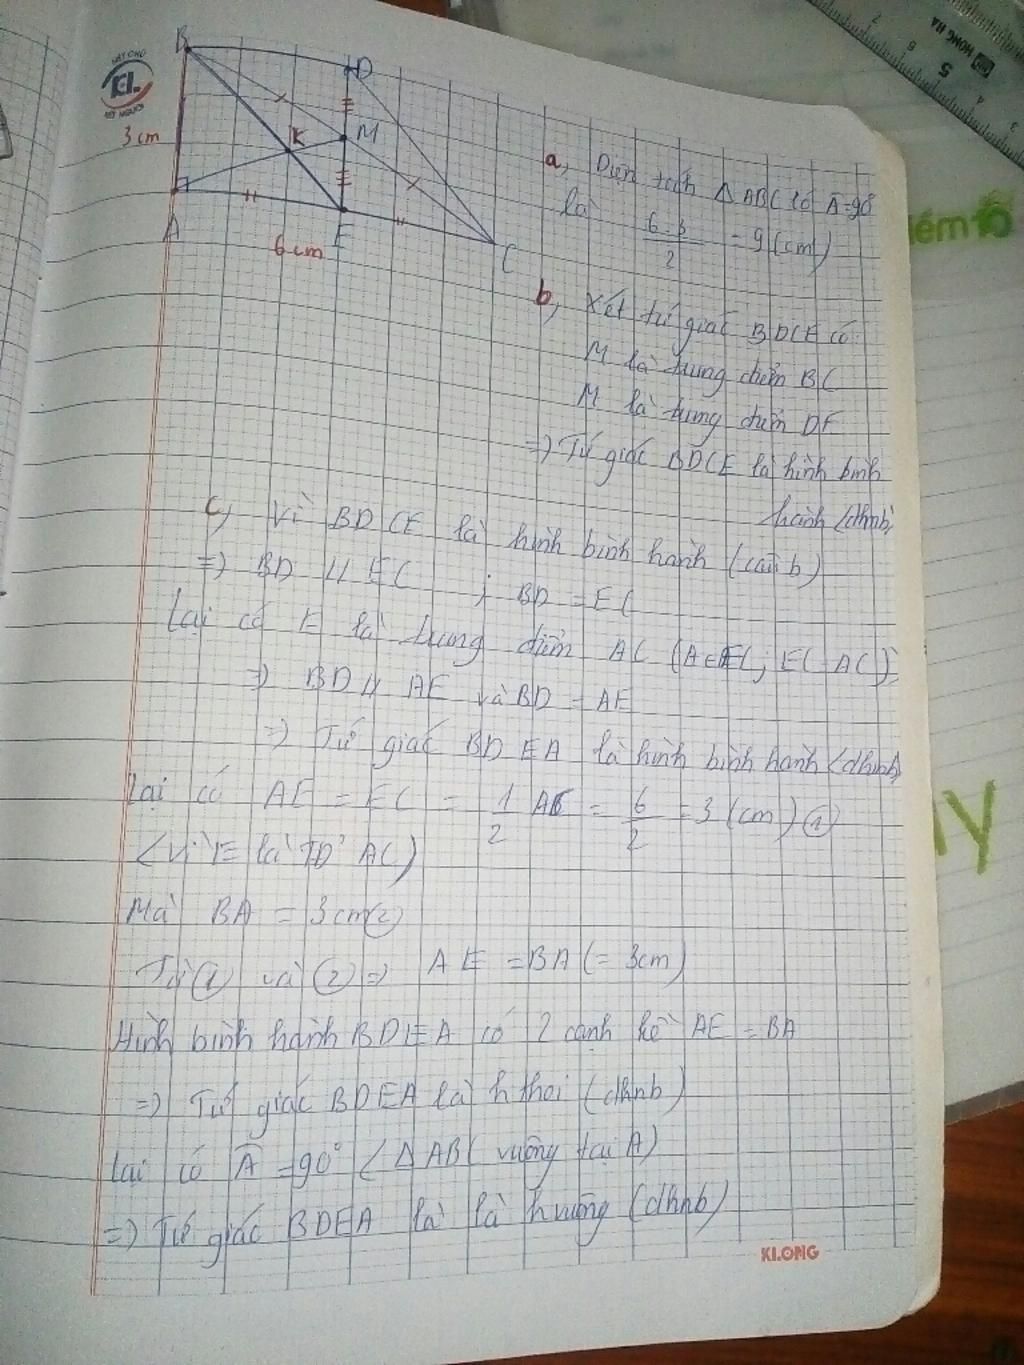 B
D
3cm
K
M
A
E
6cm
C
HẾT CHỮ
KL.
HẾT NGƯỜI
HONG HA
5
6
7
4
iểm 10
a, Diện tích Δ ABC có Â=90°
là 6.3/2 = 9 (cm)
b, Xét tứ giác BDCE có:
M là trung điểm BC
M là trung điểm DE
=> Tứ giác BDCE là hình bình
hành (dhnb)
c, Vì BDCE là hình bình hành (câu b)
=> BD // EC ; BD = EC
Lại có E là trung điểm AC (
=> BD // AE và BD = AE
=> Tứ giác BDEA là hình bình hành (dhnb)
Lại có AE = EC = 1/2 AC = 6/2 = 3 (cm) (1)
(Vì E là TĐ AC)
Mà BA = 3cm (2)
Từ (1) và (2) => AE = BA (= 3cm)
Hình bình hành BDEA có 2 cạnh kề AE = BA
=> Tứ giác BDEA là h thoi (dhnb)
Lại có Â = 90° (Δ ABC vuông tại A)
=> Tứ giác BDEA là là h vuông (dhnb)
KLONG